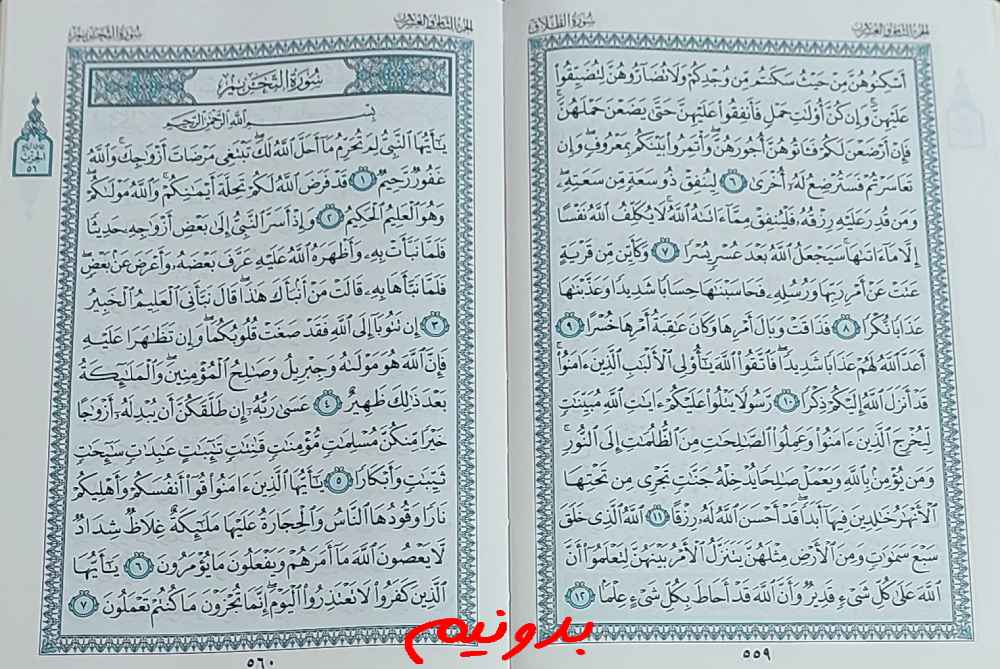 الجزء الثامن والعشرون
سورة الطلاق
أَسْكِنُوهُنَّ مِنْ حَيْثُ سَكَنتُم مِّن وُجْدِكُمْ وَلَا تُضَارُّوهُنَّ لِتُضَيِّقُوا۟
عَلَيْهِنَّ ۚ وَإِن كُنَّ أُو۟لَٰتِ حَمْلٍ فَأَنفِقُوا۟ عَلَيْهِنَّ حَتَّىٰ يَضَعْنَ حَمْلَهُنَّ ۚ
فَإِنْ أَرْضَعْنَ لَكُمْ فَـَٔاتُوهُنَّ أُجُورَهُنَّ ۖ وَأْتَمِرُوا۟ بَيْنَكُم بِمَعْرُوفٍ ۖ وَإِن
تَعَاسَرْتُمْ فَسَتُرْضِعُ لَهُۥٓ أُخْرَىٰ ٦ لِيُنفِقْ ذُو سَعَةٍ مِّن سَعَتِهِۦ ۖ
وَمَن قُدِرَ عَلَيْهِ رِزْقُهُۥ فَلْيُنفِقْ مِمَّآ ءَاتَىٰهُ ٱللَّهُ ۚ لَا يُكَلِّفُ ٱللَّهُ نَفْسًا
إِلَّا مَآ ءَاتَىٰهَا ۚ سَيَجْعَلُ ٱللَّهُ بَعْدَ عُسْرٍ يُسْرًا ٧ وَكَأَيِّن مِّن قَرْيَةٍ
عَتَتْ عَنْ أَمْرِ رَبِّهَا وَرُسُلِهِۦ فَحَاسَبْنَٰهَا حِسَابًا شَدِيدًا وَعَذَّبْنَٰهَا
عَذَابًا نُّكْرًا ٨ فَذَاقَتْ وَبَالَ أَمْرِهَا وَكَانَ عَٰقِبَةُ أَمْرِهَا خُسْرًا ٩
أَعَدَّ ٱللَّهُ لَهُمْ عَذَابًا شَدِيدًا ۖ فَٱتَّقُوا۟ ٱللَّهَ يَٰٓأُو۟لِى ٱلْأَلْبَٰبِ ٱلَّذِينَ ءَامَنُوا۟ ۚ
قَدْ أَنزَلَ ٱللَّهُ إِلَيْكُمْ ذِكْرًا ١٠ رَّسُولًا يَتْلُوا۟ عَلَيْكُمْ ءَايَٰتِ ٱللَّهِ مُبَيِّنَٰتٍ
لِّيُخْرِجَ ٱلَّذِينَ ءَامَنُوا۟ وَعَمِلُوا۟ ٱلصَّٰلِحَٰتِ مِنَ ٱلظُّلُمَٰتِ إِلَى ٱلنُّورِ ۚ
وَمَن يُؤْمِنۢ بِٱللَّهِ وَيَعْمَلْ صَٰلِحًا يُدْخِلْهُ جَنَّٰتٍ تَجْرِى مِن تَحْتِهَا
ٱلْأَنْهَٰرُ خَٰلِدِينَ فِيهَآ أَبَدًا ۖ قَدْ أَحْسَنَ ٱللَّهُ لَهُۥ رِزْقًا ١١ ٱللَّهُ ٱلَّذِى خَلَقَ
سَبْعَ سَمَٰوَٰتٍ وَمِنَ ٱلْأَرْضِ مِثْلَهُنَّ يَتَنَزَّلُ ٱلْأَمْرُ بَيْنَهُنَّ لِتَعْلَمُوٓا۟ أَنَّ
ٱللَّهَ عَلَىٰ كُلِّ شَىْءٍ قَدِيرٌ وَأَنَّ ٱللَّهَ قَدْ أَحَاطَ بِكُلِّ شَىْءٍ عِلْمًۢا ١٢
٥٥٩
الجزء الثامن والعشرون
سورة التحريم
سورة التحريم
بِسْمِ ٱللَّهِ ٱلرَّحْمَٰنِ ٱلرَّحِيمِ
يَٰٓأَيُّهَا ٱلنَّبِىُّ لِمَ تُحَرِّمُ مَآ أَحَلَّ ٱللَّهُ لَكَ ۖ تَبْتَغِى مَرْضَاتَ أَزْوَٰجِكَ ۚ وَٱللَّهُ
غَفُورٌ رَّحِيمٌ ١ قَدْ فَرَضَ ٱللَّهُ لَكُمْ تَحِلَّةَ أَيْمَٰنِكُمْ ۚ وَٱللَّهُ مَوْلَىٰكُمْ ۖ
وَهُوَ ٱلْعَلِيمُ ٱلْحَكِيمُ ٢ وَإِذْ أَسَرَّ ٱلنَّبِىُّ إِلَىٰ بَعْضِ أَزْوَٰجِهِۦ حَدِيثًا
فَلَمَّا نَبَّأَتْ بِهِۦ وَأَظْهَرَهُ ٱللَّهُ عَلَيْهِ عَرَّفَ بَعْضَهُۥ وَأَعْرَضَ عَنۢ بَعْضٍ ۖ
فَلَمَّا نَبَّأَهَا بِهِۦ قَالَتْ مَنْ أَنۢبَأَكَ هَٰذَا ۖ قَالَ نَبَّأَنِىَ ٱلْعَلِيمُ ٱلْخَبِيرُ
٣ إِن تَتُوبَآ إِلَى ٱللَّهِ فَقَدْ صَغَتْ قُلُوبُكُمَا ۖ وَإِن تَظَٰهَرَا عَلَيْهِ
فَإِنَّ ٱللَّهَ هُوَ مَوْلَىٰهُ وَجِبْرِيلُ وَصَٰلِحُ ٱلْمُؤْمِنِينَ ۖ وَٱلْمَلَٰٓئِكَةُ
بَعْدَ ذَٰلِكَ ظَهِيرٌ ٤ عَسَىٰ رَبُّهُۥٓ إِن طَلَّقَكُنَّ أَن يُبْدِلَهُۥٓ أَزْوَٰجًا
خَيْرًا مِّنكُنَّ مُسْلِمَٰتٍ مُّؤْمِنَٰتٍ قَٰنِتَٰتٍ تَٰٓئِبَٰتٍ عَٰبِدَٰتٍ سَٰٓئِحَٰتٍ
ثَيِّبَٰتٍ وَأَبْكَارًا ٥ يَٰٓأَيُّهَا ٱلَّذِينَ ءَامَنُوا۟ قُوٓا۟ أَنفُسَكُمْ وَأَهْلِيكُمْ
نَارًا وَقُودُهَا ٱلنَّاسُ وَٱلْحِجَارَةُ عَلَيْهَا مَلَٰٓئِكَةٌ غِلَاظٌ شِدَادٌ
لَّا يَعْصُونَ ٱللَّهَ مَآ أَمَرَهُمْ وَيَفْعَلُونَ مَا يُؤْمَرُونَ ٦ يَٰٓأَيُّهَا
ٱلَّذِينَ كَفَرُوا۟ لَا تَعْتَذِرُوا۟ ٱلْيَوْمَ ۖ إِنَّمَا تُجْزَوْنَ مَا كُنتُمْ تَعْمَلُونَ ٧
الحزب
٥٦
٥٦٠
بدونیم